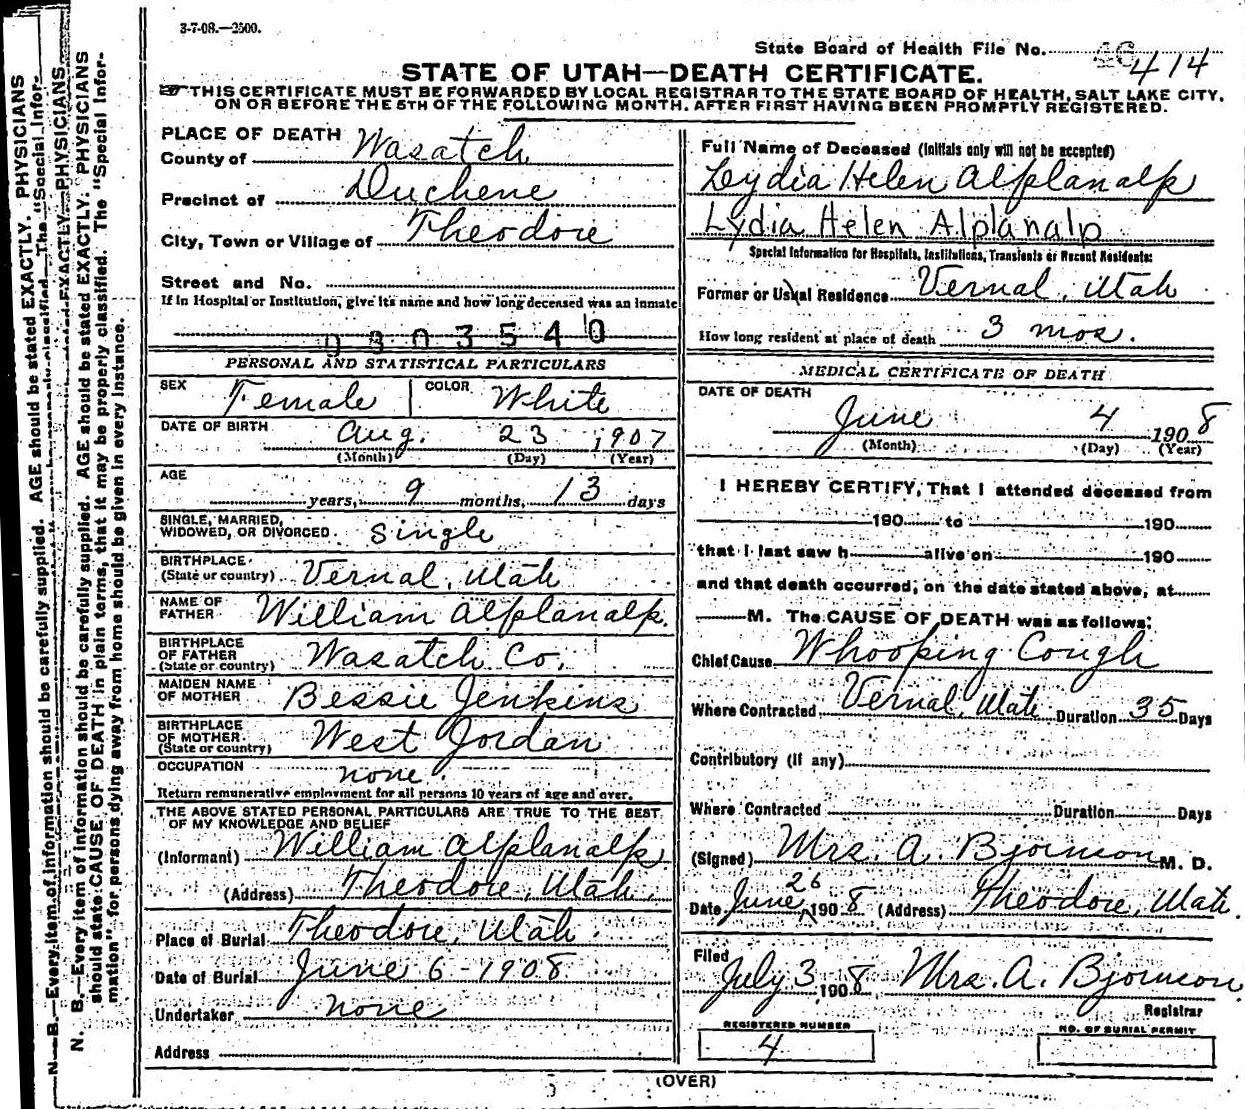 3-7-08.—2500.
State Board of Health File No. 414
STATE OF UTAH—DEATH CERTIFICATE.
THIS CERTIFICATE MUST BE FORWARDED BY LOCAL REGISTRAR TO THE STATE BOARD OF HEALTH, SALT LAKE CITY,
ON OR BEFORE THE 5TH OF THE FOLLOWING MONTH. AFTER FIRST HAVING BEEN PROMPTLY REGISTERED.
PLACE OF DEATH
County of Wasatch
Precinct of Duchene
City, Town or Village of Theodore
Street and No.
If in Hospital or Institution, give its name and how long deceased was an inmate
0303540
PERSONAL AND STATISTICAL PARTICULARS
SEX Female COLOR White
DATE OF BIRTH Aug. 23 1907
(Month) (Day) (Year)
AGE
years, 9 months, 13 days
SINGLE, MARRIED,
WIDOWED, OR DIVORCED. Single
BIRTHPLACE
(State or country) Vernal, Utah
NAME OF
FATHER William Alplanalp.
BIRTHPLACE
OF FATHER
(State or country) Wasatch Co.
MAIDEN NAME
OF MOTHER Bessie Jenkins
BIRTHPLACE
OF MOTHER
(State or country) West Jordan
OCCUPATION none.
Return remunerative employment for all persons 10 years of age and over.
THE ABOVE STATED PERSONAL PARTICULARS ARE TRUE TO THE BEST
OF MY KNOWLEDGE AND BELIEF
(Informant) William Alplanalp
(Address) Theodore, Utah.
Place of Burial Theodore, Utah.
Date of Burial June 6-1908
Undertaker none
Address
Full Name of Deceased (Initials only will not be accepted)
Lydia Helen Alplanalp
Lydia Helen Alplanalp
Special Information for Hospitals, Institutions, Transients or Recent Residents:
Former or Usual Residence Vernal, Utah
How long resident at place of death 3 mos.
MEDICAL CERTIFICATE OF DEATH
DATE OF DEATH
June 4 1908
(Month) (Day) (Year)
I HEREBY CERTIFY, That I attended deceased from
190 to 190
that I last saw h alive on 190
and that death occurred, on the date stated above, at
M. The CAUSE OF DEATH was as follows:
Chief Cause Whooping Cough
Where Contracted Vernal, Utah Duration 35 Days
Contributory (if any)
Where Contracted Duration Days
(Signed) Mrs. A. Bjornson M. D.
Date June 26 1908 (Address) Theodore, Utah.
Filed
July 3 1908 Mrs. A. Bjornson
Registrar
REGISTERED NUMBER
4
NO. OF BURIAL PERMIT
(OVER)
N. B.—Every item of information should be carefully supplied. AGE should be stated EXACTLY. PHYSICIANS
N. B.—Every item of information should be carefully supplied. AGE should be stated EXACTLY. PHYSICIANS
should state CAUSE OF DEATH in plain terms, that it may be properly classified. The "Special Infor-
mation" for persons dying away from home should be given in every instance.